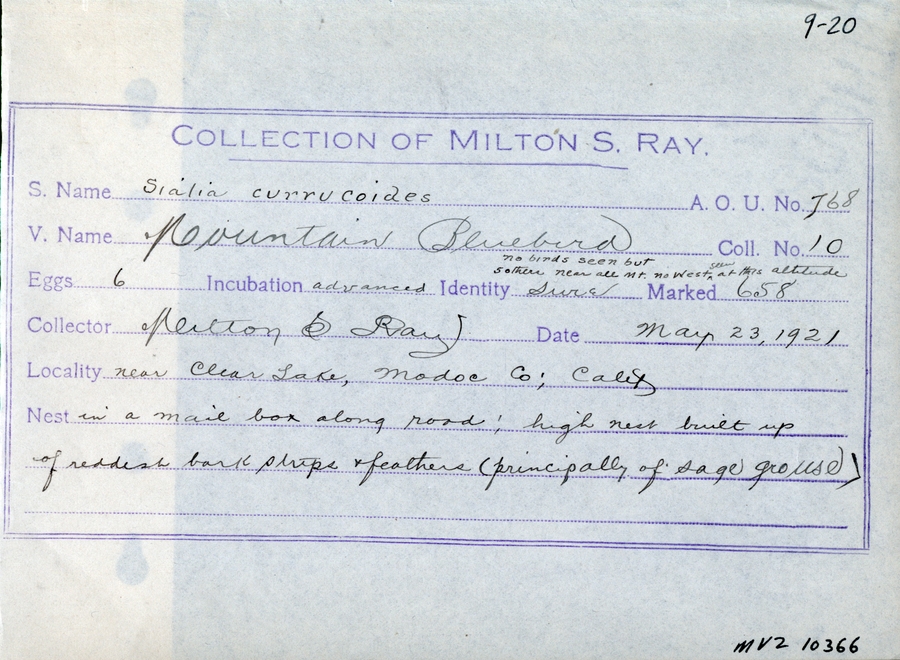 9-20
COLLECTION OF MILTON S. RAY.
S. Name Sialia currucoides A. O. U. No. 768
V. Name Mountain Bluebird Coll. No. 10
no birds seen but
others near all Mt. no West. seen at this altitude
Eggs 6 Incubation advanced Identity Sure Marked 658
Collector Milton S Ray Date May 23, 1921
Locality near Clear Lake, Modoc Co; Calif
Nest in a mail box along road; high nest built up
of reddish bark strips & feathers (principally of sage grouse)
MVZ 10366